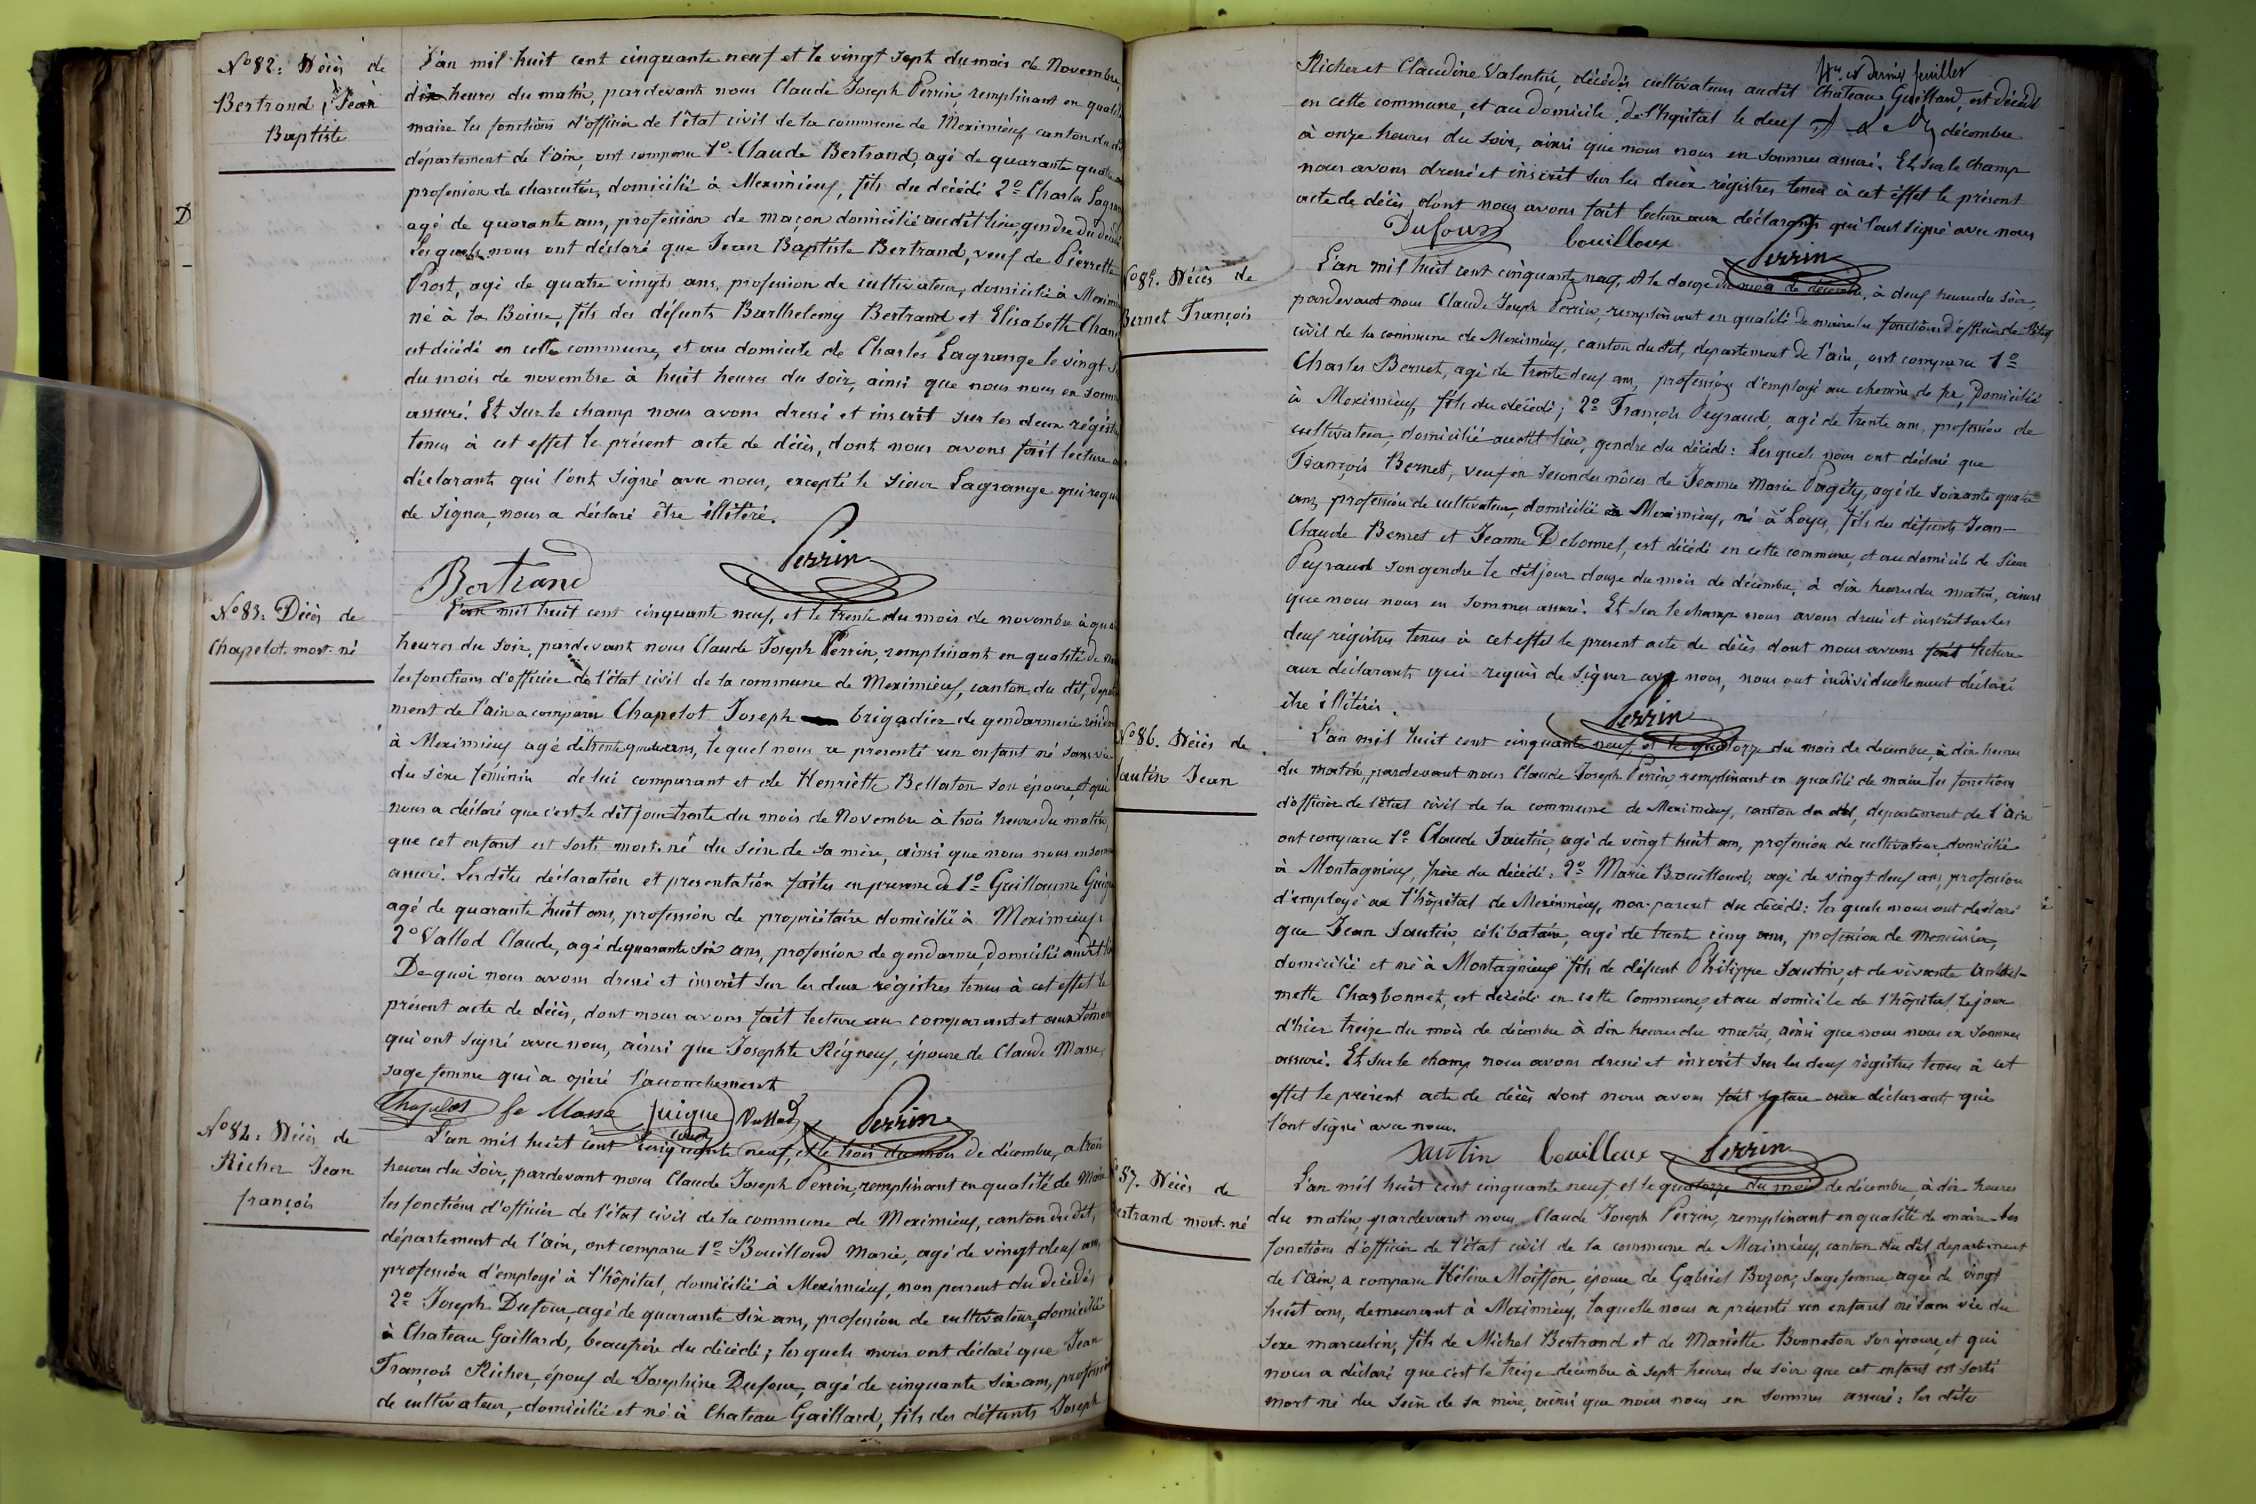 N° 82. Décès de
Bertrand, Jean
Baptiste
L'an mil huit cent cinquante neuf et le vingt sept du mois de Novembre,
dix heures du matin, pardevant nous Claude Joseph Perrin, remplissant en qualité
maire les fonctions d'officier de l'état civil de la commune de Meximieux canton du
département de l'ain, ont comparu 1° Claude Bertrand, agé de quarante quatre
profession de charcutier, domicilié à Meximieux, fils du décédé 2° Charles Lagrange
agé de quarante ans, profession de maçon domicilié audit lieu, gendre du décédé
Lesquels nous ont déclaré que Jean Baptiste Bertrand, veuf de Pierrette
Prost, agé de quatre vingts ans, profession de cultivateur, domicilié à Meximieux
né à la Boisse, fils des défunts Barthelemy Bertrand et Elisabeth
est décédé en cette commune, et au domicile de Charles Lagrange le vingt
du mois de novembre à huit heures du soir, ainsi que nous nous en sommes
assuré. Et sur le champ nous avons dressé et inscrit sur les deux régistres
tenus à cet effet le présent acte de décès, dont nous avons fait lecture
déclarants qui l'ont signé avec nous, excepté le sieur Lagrange qui requis
de signer, nous a déclaré être illétéré.
Bertrand Perrin
N° 83. Décès de
Chapelot mort-né
L'an mil huit cent cinquante neuf, et le trente du mois de novembre à
heures du soir, pardevant nous Claude Joseph Perrin, remplissant en qualité de
les fonctions d'officier de l'état civil de la commune de Meximieux, canton du dit, départe
ment de l'ain a comparu Chapelot Joseph brigadier de gendarmerie
à Meximieux agé de trente quatre ans, lequel nous a presenté un enfant né sans vie
du sexe féminin de lui comparant et de Henriette Bellaton son épouse, et qui
nous a déclaré que c'est le dit jour trente du mois de Novembre à trois heures du matin,
que cet enfant est sorti mort-né du sein de sa mère, ainsi que nous nous en sommes
assuré. Les dites déclaration et presentation faites en presence de 1° Guillaume Guigue
agé de quarante huit ans, profession de propriétaire domicilié à Meximieux
2° Vallod Claude, agé de quarante six ans, profession de gendarme, domicilié audit
De quoi nous avons dressé et inscrit sur les deux régistres tenus à cet effet le
présent acte de décès, dont nous avons fait lecture au comparant et aux témoins
qui ont signé avec nous, ainsi que Josephte Régneux, épouse de Claude Masse,
sage femme qui a opéré l'accouchement
Chapelot fe Masse Guigue Vallod Perrin
N° 84. Décès de
Richer Jean
françois
L'an mil huit cent cinquante neuf, et le trois du mois de décembre, a trois
heures du soir, pardevant nous Claude Joseph Perrin, remplissant en qualité de Maire
les fonctions d'officier de l'état civil de la commune de Meximieux, canton du dit,
département de l'ain, ont comparu 1° Bouilloud Marie, agé de vingt deux ans,
profession d'employé à l'hôpital, domicilié à Meximieux, non parent du décédé
2° Joseph Dufour, agé de quarante six ans, profession de cultivateur, domicilié
à Chateau Gaillard, beaupère du décédé; lesquels nous ont déclaré que Jean
François Richer, époux de Josephine Dufour, agé de cinquante six ans, profession
de cultivateur, domicilié et né à Chateau Gaillard, fils des défunts Joseph
et dernier feuillet
Richer et Claudine Valentin, décédés cultivateurs audit Chateau Gaillard, est décédé
en cette commune, et au domicile de l'hopital le deux décembre
à onze heures du soir, ainsi que nous nous en sommes assuré. Et sur le champ
nous avons dressé et inscrit sur les deux régistres tenus à cet effet le présent
acte de décès, dont nous avons fait lecture aux déclarants qui l'ont signé avec nous
Dufour bouilloux Perrin
N° 85. Décès de
Bernet François
L'an mil huit cent cinquante neuf, et le douze du mois de décembre, à deux heures du soir,
pardevant nous Claude Joseph Perrin, remplissant en qualité de maire les fonctions d'officier de l'état
civil de la commune de Meximieux, canton du dit, departement de l'ain, ont comparu 1°
Charles Bernet, agé de trente deux ans, profession d'employé au chemin de fer, domicilié
à Meximieux, fils du décédé; 2° François Peyraud, agé de trente ans, profession de
cultivateur, domicilié audit lieu, gendre du décédé: Lesquels nous ont déclaré que
François Bernet, veuf en secondes nôces de Jeanne Marie Pagéty, agé de soixante quatre
ans, profession de cultivateur, domicilié à Meximieux, né à Loyes, fils des défunts Jean-
Claude Bernet et Jeanne Debonnel, est décédé en cette commune, et au domicile de sieur
Peyraud son gendre le dit jour douze du mois de décembre, à dix heures du matin, ainsi
que nous nous en sommes assuré. Et sur le champ nous avons dressé et inscrit sur les
deux régistres tenus à cet effet le present acte de décès dont nous avons fait lecture
aux declarants qui requis de signer avec nous, nous ont individuellement déclaré
être illétérés.
Perrin
N° 86. Décès de
Sautin Jean
L'an mil huit cent cinquante neuf, et le quatorze du mois de decembre, à dix heures
du matin, pardevant nous Claude Joseph Perrin remplissant en qualité de maire les fonctions
d'officier de l'état civil de la commune de Meximieux, canton du dit, departement de l'ain
ont comparu 1° Claude Sautin, agé de vingt huit ans, profession de cultivateur, domicilié
à Montagnieux, frère du décédé: 2° Marie Bouilloud, agé de vingt deux ans, profession
d'employé à l'hôpital de Meximieux, non-parent du décédé: lesquels nous ont déclaré
que Jean Sautin, célibataire, agé de trente cinq ans, profession de menuisier,
domicilié et né à Montagnieux fils de défunt Philippe Sautin, et de vivante Anthel-
mette Charbonnet, est décédé en cette Commune, et au domicile de l'hôpital le jour
d'hier treize du mois de décembre à dix heures du matin, ainsi que nous nous en sommes
assuré. Et sur le champ nous avons dressé et inscrit sur les deux régistres tenus à cet
effet le présent acte de décès dont nous avons fait lecture aux déclarants qui
l'ont signé avec nous.
Sautin bouilloux Perrin
87. Décès de
Bertrand mort-né
L'an mil huit cent cinquante neuf, et le quatorze du mois de décembre, à dix heures
du matin, pardevant nous Claude Joseph Perrin, remplissant en qualité de maire les
fonctions d'officier de l'état civil de la commune de Meximieux, canton du dit, departement
de l'ain, a comparu Hélène Moiffon, épouse de Gabriel Bozon, sage femme agée de vingt
huit ans, demeurant à Meximieux, laquelle nous a présenté un enfant né sans vie du
sexe masculin, fils de Michel Bertrand et de Mariette Bonneton son épouse, et qui
nous a déclaré que c'est le treize décembre à sept heures du soir que cet enfant est sorti
mort né du sein de sa mère, ainsi que nous nous en sommes assuré: les dites